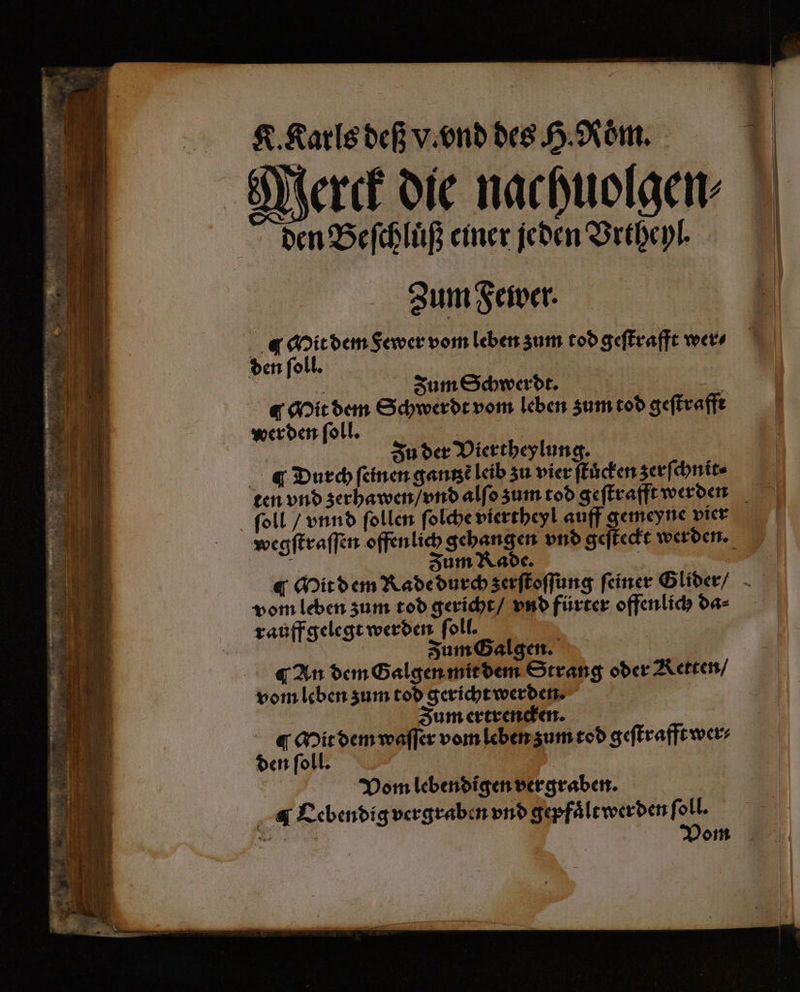 K. Karls deß v. vnd des H. Röm.
Merck die nachuolgen⸗
den Beſchlůß einer jeden Vrtheyl.
Zum Fewer.
¶ Mit dem Fewer vom leben zum tod geſtrafft wer⸗
den ſoll.
Zum Schwerdt.
¶ Mit dem Schwerdt vom leben zum tod geſtrafft
werden ſoll.
Zu der Viertheylung.
¶ Durch ſeinen gantzē leib zu vier ſtücken zerſchnit⸗
ten vnd zerhawen/vnd alſo zum tod geſtrafft werden
ſoll / vnnd ſollen ſolche viertheyl auff gemeyne vier
wegſtraſſen offenlich gehangen vnd geſteckt werden.
Zum Rade.
¶ Mit dem Rade durch zerſtoſſung ſeiner Glider/
vom leben zum tod gericht/ vnd fürter offenlich da⸗
rauff gelegt werden ſoll.
Zum Galgen.
¶ An dem Galgen mit dem Strang oder Ketten/
vom leben zum tod gericht werden.
Zum ertrencken.
¶ Mit dem waſſer vom leben zum tod geſtrafft wer⸗
den ſoll.
Vom lebendigen vergraben.
¶ Lebendig vergraben vnd gepfält werden ſoll.
Vom